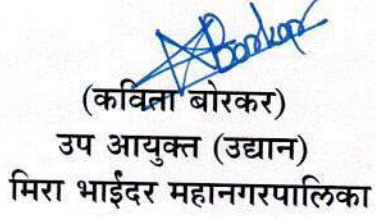 Borkar
(कविता बोरकर)
उप आयुक्त (उद्यान)
मिरा भाईंदर महानगरपालिका